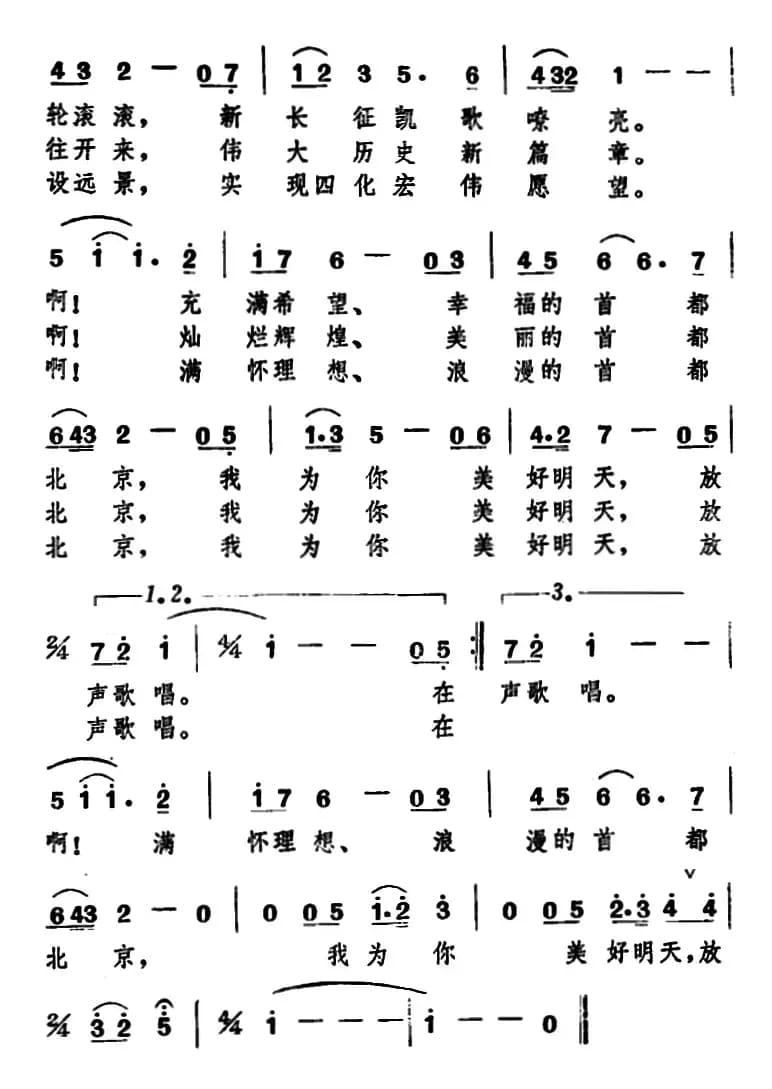 4 3 2 — 0 7 | 1 2 3 5. 6 | 4 3 2 1 — — |
轮滚滚， 新 长 征 凯 歌 嘹 亮。
往开来， 伟 大 历 史 新 篇 章。
设远景， 实 现四 化 宏 伟 愿 望。
5 1 1. 2 | 1 7 6 — 0 3 | 4 5 6 6. 7 |
啊！ 充 满希 望、 幸 福的 首 都
啊！ 灿 烂辉 煌、 美 丽的 首 都
啊！ 满 怀理 想、 浪 漫的 首 都
6 4 3 2 — 0 5 | 1. 3 5 — 0 6 | 4. 2 7 — 0 5 |
北 京， 我 为 你 美 好明 天， 放
北 京， 我 为 你 美 好明 天， 放
北 京， 我 为 你 美 好明 天， 放
1. 2. 3.
2/4 7 2 1 | 4/4 1 — — 0 5 :‖ 7 2 1 — — |
声歌 唱。 在 声歌 唱。
声歌 唱。 在
5 1 1. 2 | 1 7 6 — 0 3 | 4 5 6 6. 7 |
啊！ 满 怀理 想、 浪 漫的 首 都
6 4 3 2 — 0 | 0 0 5 1. 2 3 | 0 0 5 2. 3 4 4 |
北 京， 我 为 你 美 好明天，放
2/4 3 2 5 | 4/4 1 — — — | 1 — — 0 ‖